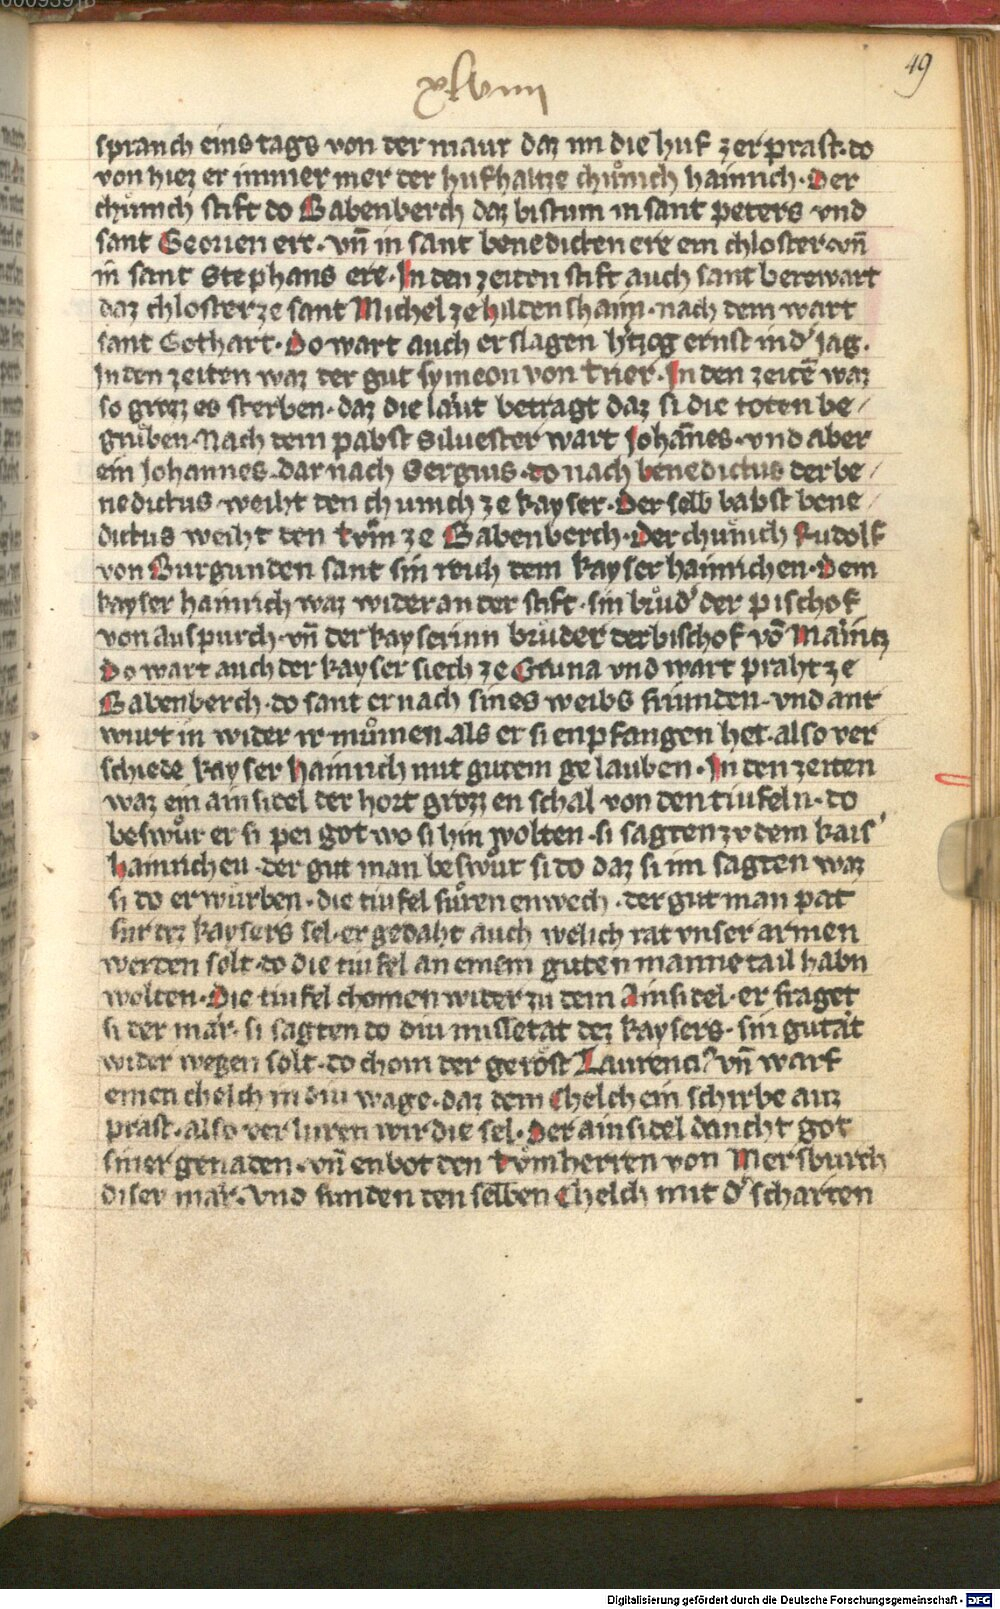 00093918
49
xlviiii
spranch eins tags von der maur daz im die huf zerprast· do
von hiez er immer mer der hufhaltze chůnich hainrich· Der
chůnich stift do Babenberch daz bistum in sant peters vnd
sant Georien ere· vn̄ in sant benedicten ere ein chloster· vn̄
in sant Stephans ere· In den zeiten stift auch sant berewart
daz chloster ze sant Michel ze hildenshaim· nach dem wart
sant Gothart· Do wart auch erslagen h'tzog ernst in d' jag·
In den zeiten waz der gut symeon von trier· In den zeitē waz
so grozz es sterben· daz die laut betragt daz si die toten be/
gruben· Nach dem pabst Siluester wart Johannes· vnd aber
ein Johannes· dar nach Sergius· do nach benedictus der be/
nedictus weiht den chunich ze kayser· Der selb babst bene/
dictus weiht den tům ze Babenberch· Der chůnich Rudolf
von Burgunden sant sin reich dem kayser hainrichen· Dem
kayser hainrich waz wider an der stift· sin brůd' der pischof
von auspurch· vn̄ der kayserinn brůder der bischof vō Maintz
Do wart auch der kayser siech ze Gruna vnd wart praht ze
Babenberch· do sant er nach sines weibs friunden· vnd ant
wurt in wider ir můmen als er si enpfangen het· also ver
schiede kayser hainrich mit gutem gelauben· In den zeiten
waz ein ainsidel der hort grozzen schal von den tiufeln· do
beswůr er si pei got wo si hin wolten· si sagten zv dem kais'
hainrichen· der gut man beswůr si do daz si im sagten waz
si do erwurben· die tiufel fůren enwech· der gut man pat
fur dez kaysers sel· er gedaht auch welich rat vnser armen
werden solt· do die tiufel an einem guten manne tail habn
wolten· Die tiufel chomen wider zu dem Ainsidel· er fraget
si der mär· si sagten do diu missetat dez kaysers· sin gutät
wider wegen solt· do chom der geröst Laurenci9 vn̄ warf
einen chelch in diu wage· daz dem Chelch ein schirbe auz
prast· also verluren wir die sel· Der ainsidel dancht got
siner genaden· vn̄ enbot den tůmherren von Mersburch
diser mär· vnd funden den selben Chelch mit d' scharten
Digitalisierung gefördert durch die Deutsche Forschungsgemeinschaft - DFG